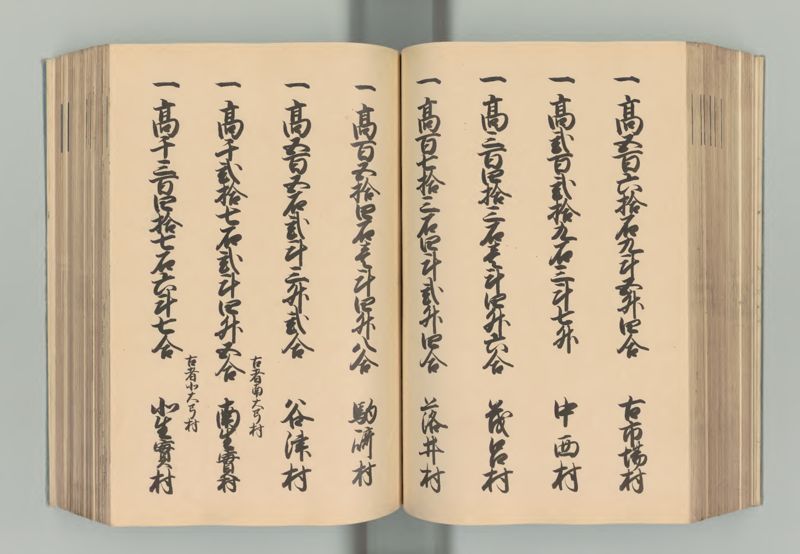 一高五百六拾石九斗五升四合 古市場村
一高弐百弐拾九石三斗七升 中西村
一高三百四拾三石壱斗四升六合 茂呂村
一高百七拾三石四斗弐升四合 落井村
一高百五拾四石壱斗四升八合 駒崎村
一高五百五石弐斗三升弐合 谷津村
古者南大弓村
一高千弐拾七石弐斗四升五合 南生實村
古者北大弓村
一高千三百四拾七石六斗七合 北生實村